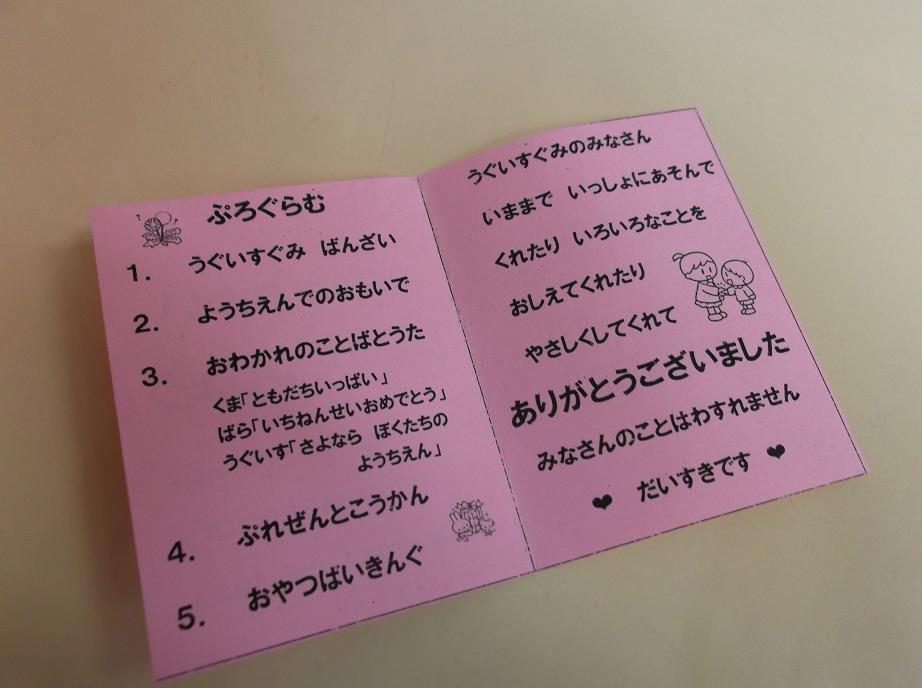 ぷろぐらむ
1. うぐいすぐみ ばんざい
2. ようちえんでのおもいで
3. おわかれのことばとうた
くま「ともだちいっぱい」
ばら「いちねんせいおめでとう」
うぐいす「さよなら ぼくたちの
ようちえん」
4. ぷれぜんとこうかん
5. おやつばいきんぐ
うぐいすぐみのみなさん
いままで いっしょにあそんで
くれたり いろいろなことを
おしえてくれたり
やさしくしてくれて
ありがとうございました
みなさんのことはわすれません
❤ だいすきです ❤